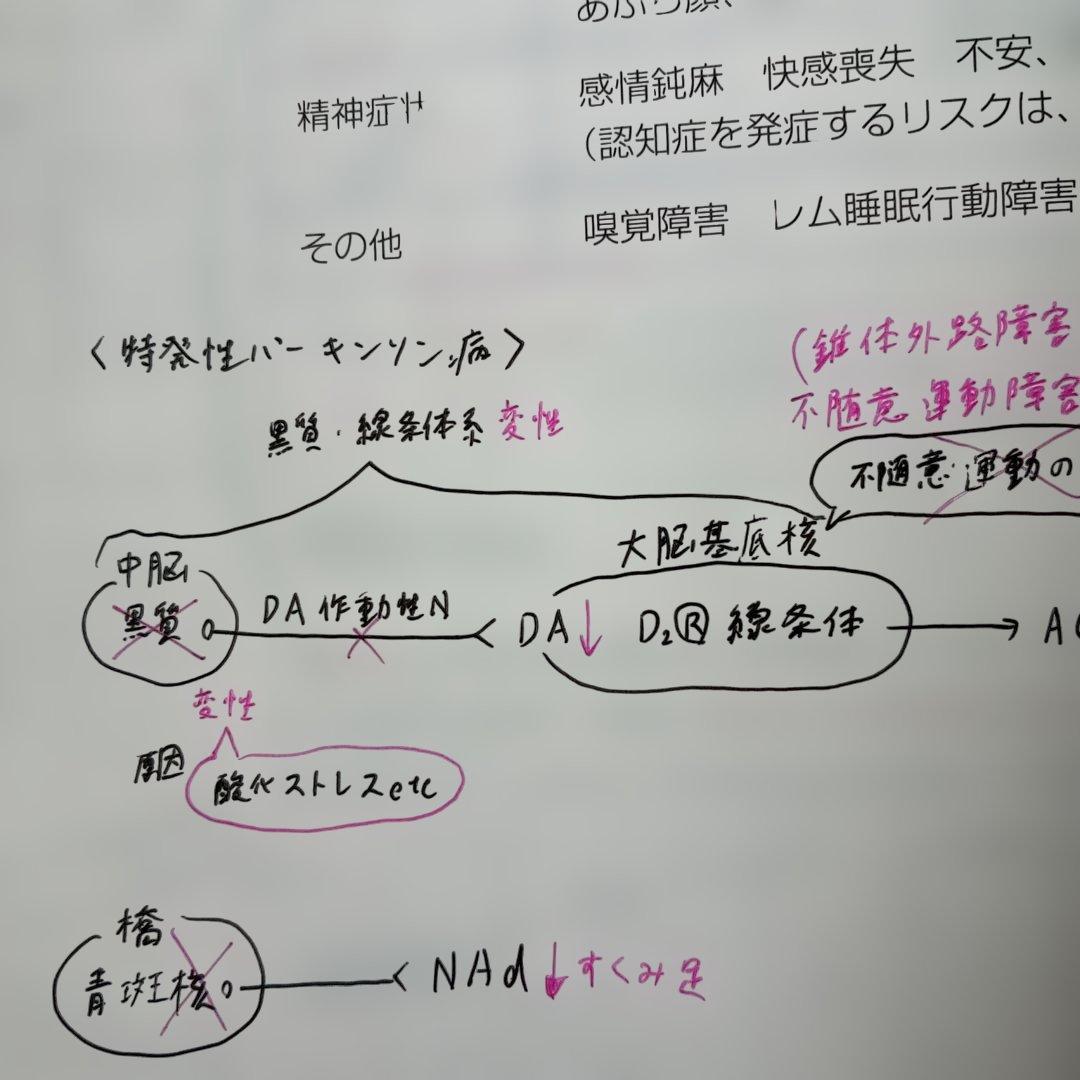 あぶら顔、
精神症状 感情鈍麻 快感喪失 不安、
(認知症を発症するリスクは、
その他 嗅覚障害 レム睡眠行動障害
〈特発性パーキンソン病〉
(錐体外路障害
不随意運動障害
黒質・線条体系変性
不随意運動の
大脳基底核
中脳
黒質 DA作動性N DA↓ D₂Ⓡ 線条体 → A
変性
原因 酸化ストレスetc
橋
青斑核 NAd↓すくみ足